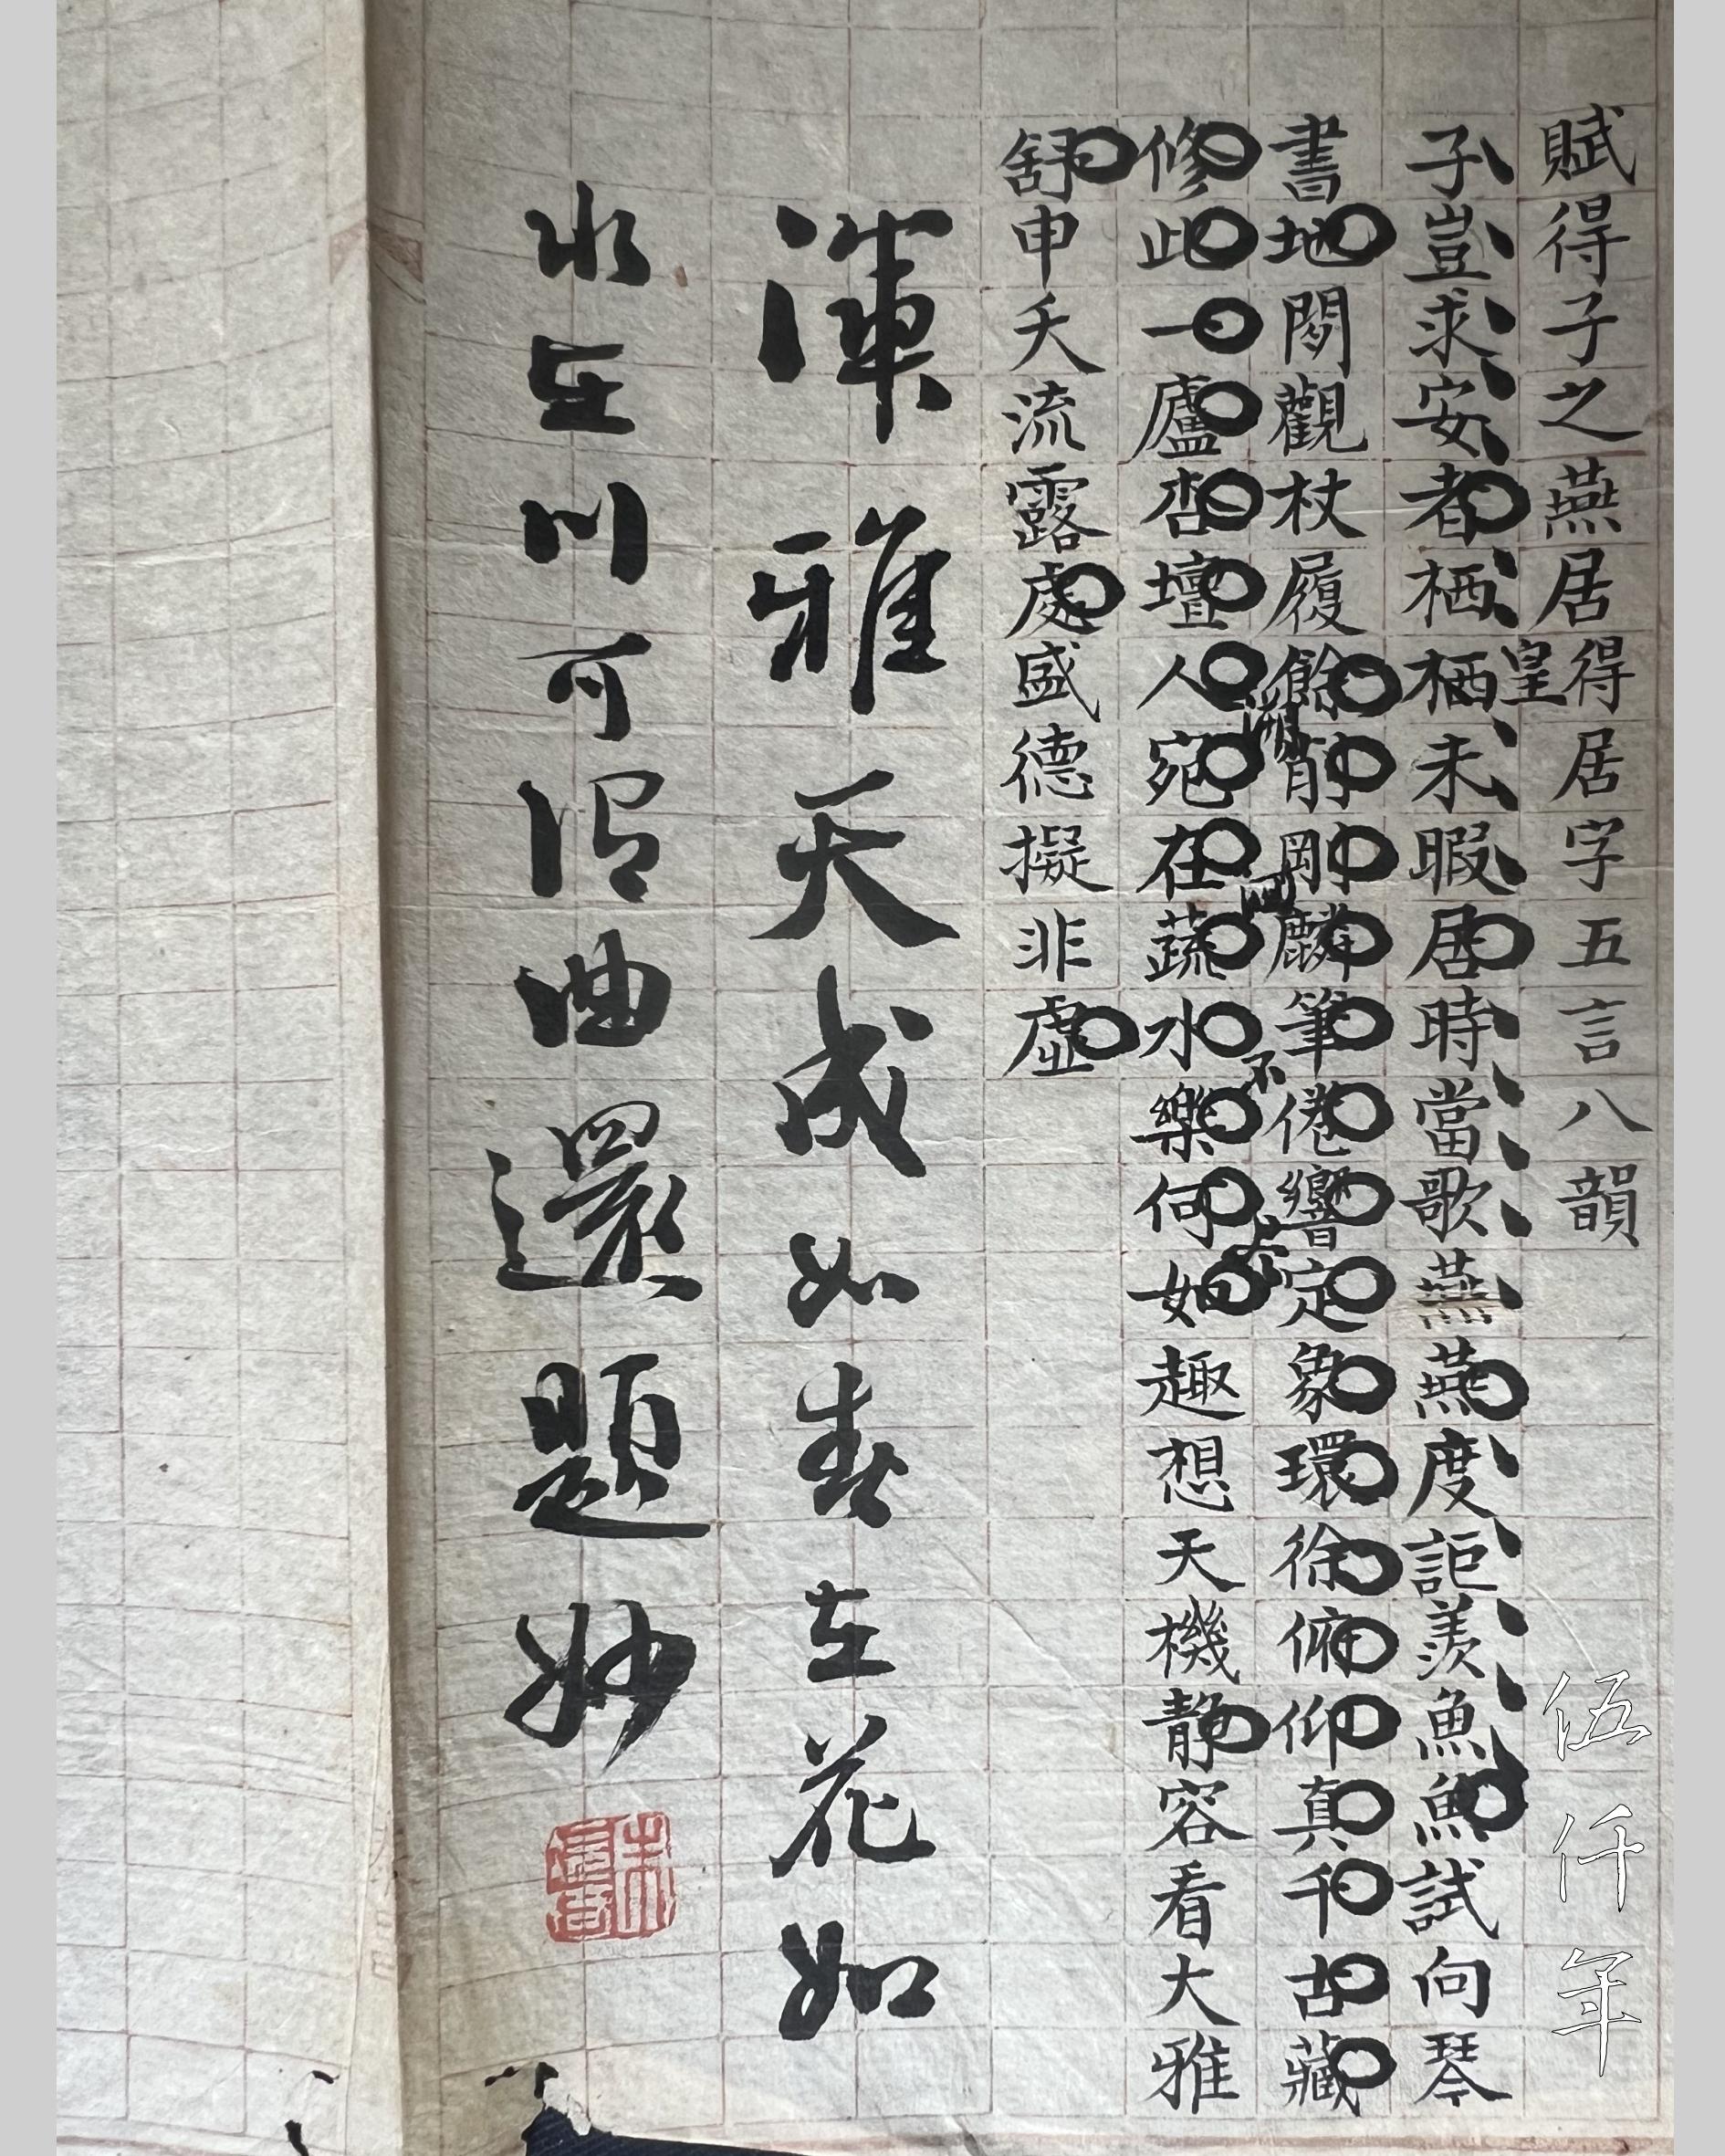 賦得子之燕居得居字五言八韻
子豈求安者栖栖未暇居時當歌燕燕度詎羨魚魚試向琴
皇
書地閒觀杖履餘削剛麟筆倦響定象環徐俯仰真千古藏
不
修此一廬杏壇人宛在蔬水樂何如趣想天機靜容看大雅
舒申夭流露處盛德擬非虛
渾雅天成如春在花如
水在川可謂曲還題妙
伍仟年